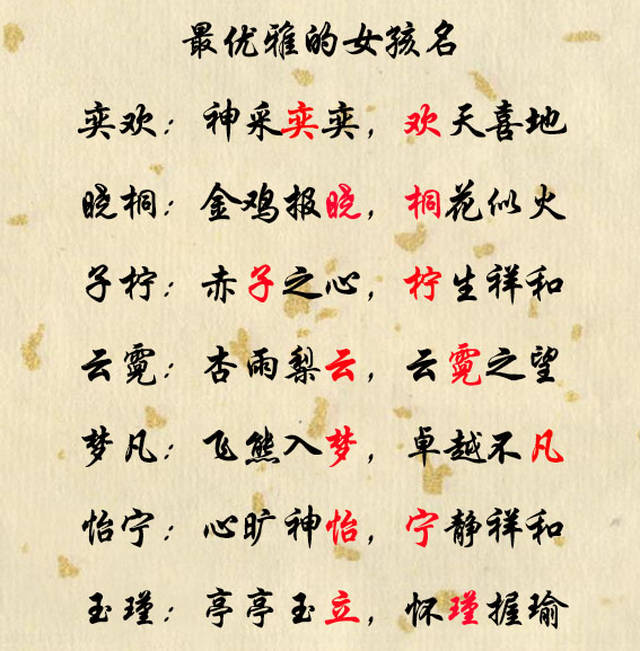 最优雅的女孩名
奕欢：神采奕奕，欢天喜地
晓桐：金鸡报晓，桐花似火
子柠：赤子之心，柠生祥和
云霓：杏雨梨云，云霓之望
梦凡：飞熊入梦，卓越不凡
怡宁：心旷神怡，宁静祥和
玉瑾：亭亭玉立，怀瑾握瑜